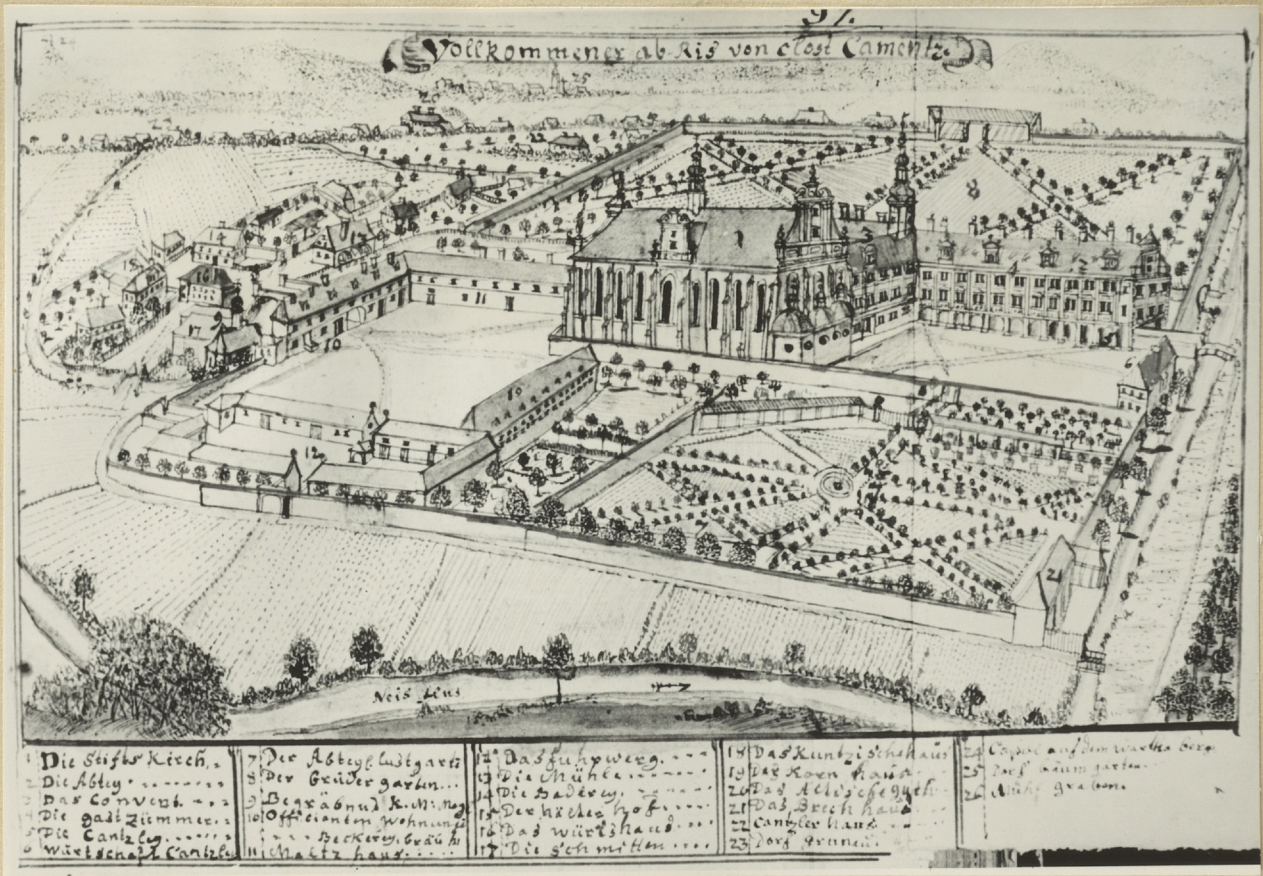 97.
Vollkommener ab-Ris von Clost Camentz.
Neis flus
1 Die Stifts Kirch.
2 Die Abtey
3 Das Convent.
4 Die gast Zümmer.
5 Die Cantzley.
6 Würtschaft Cantzley
7 Der Abteyl. lustgartt
8 Der Brüder garten
9 Begräbnus K.
10 Officianten Wohnung
Beckerey, bräuh
11 Maltz haus.
12 Das fuhrwerg.
13 Die Mühle
14 Die Baderey.
15 Der hof
16 Das würtshaus.
17 Die schmitten
18 Das Kuntzische haus
19 Der Korn haus.
20 Das
21 Das Brech haus
22 Cantzler haus
23 Dorf Grunau.
24 Capel auf dem wartha berg
25 Dorf baumgarten
26 Mühl graben.